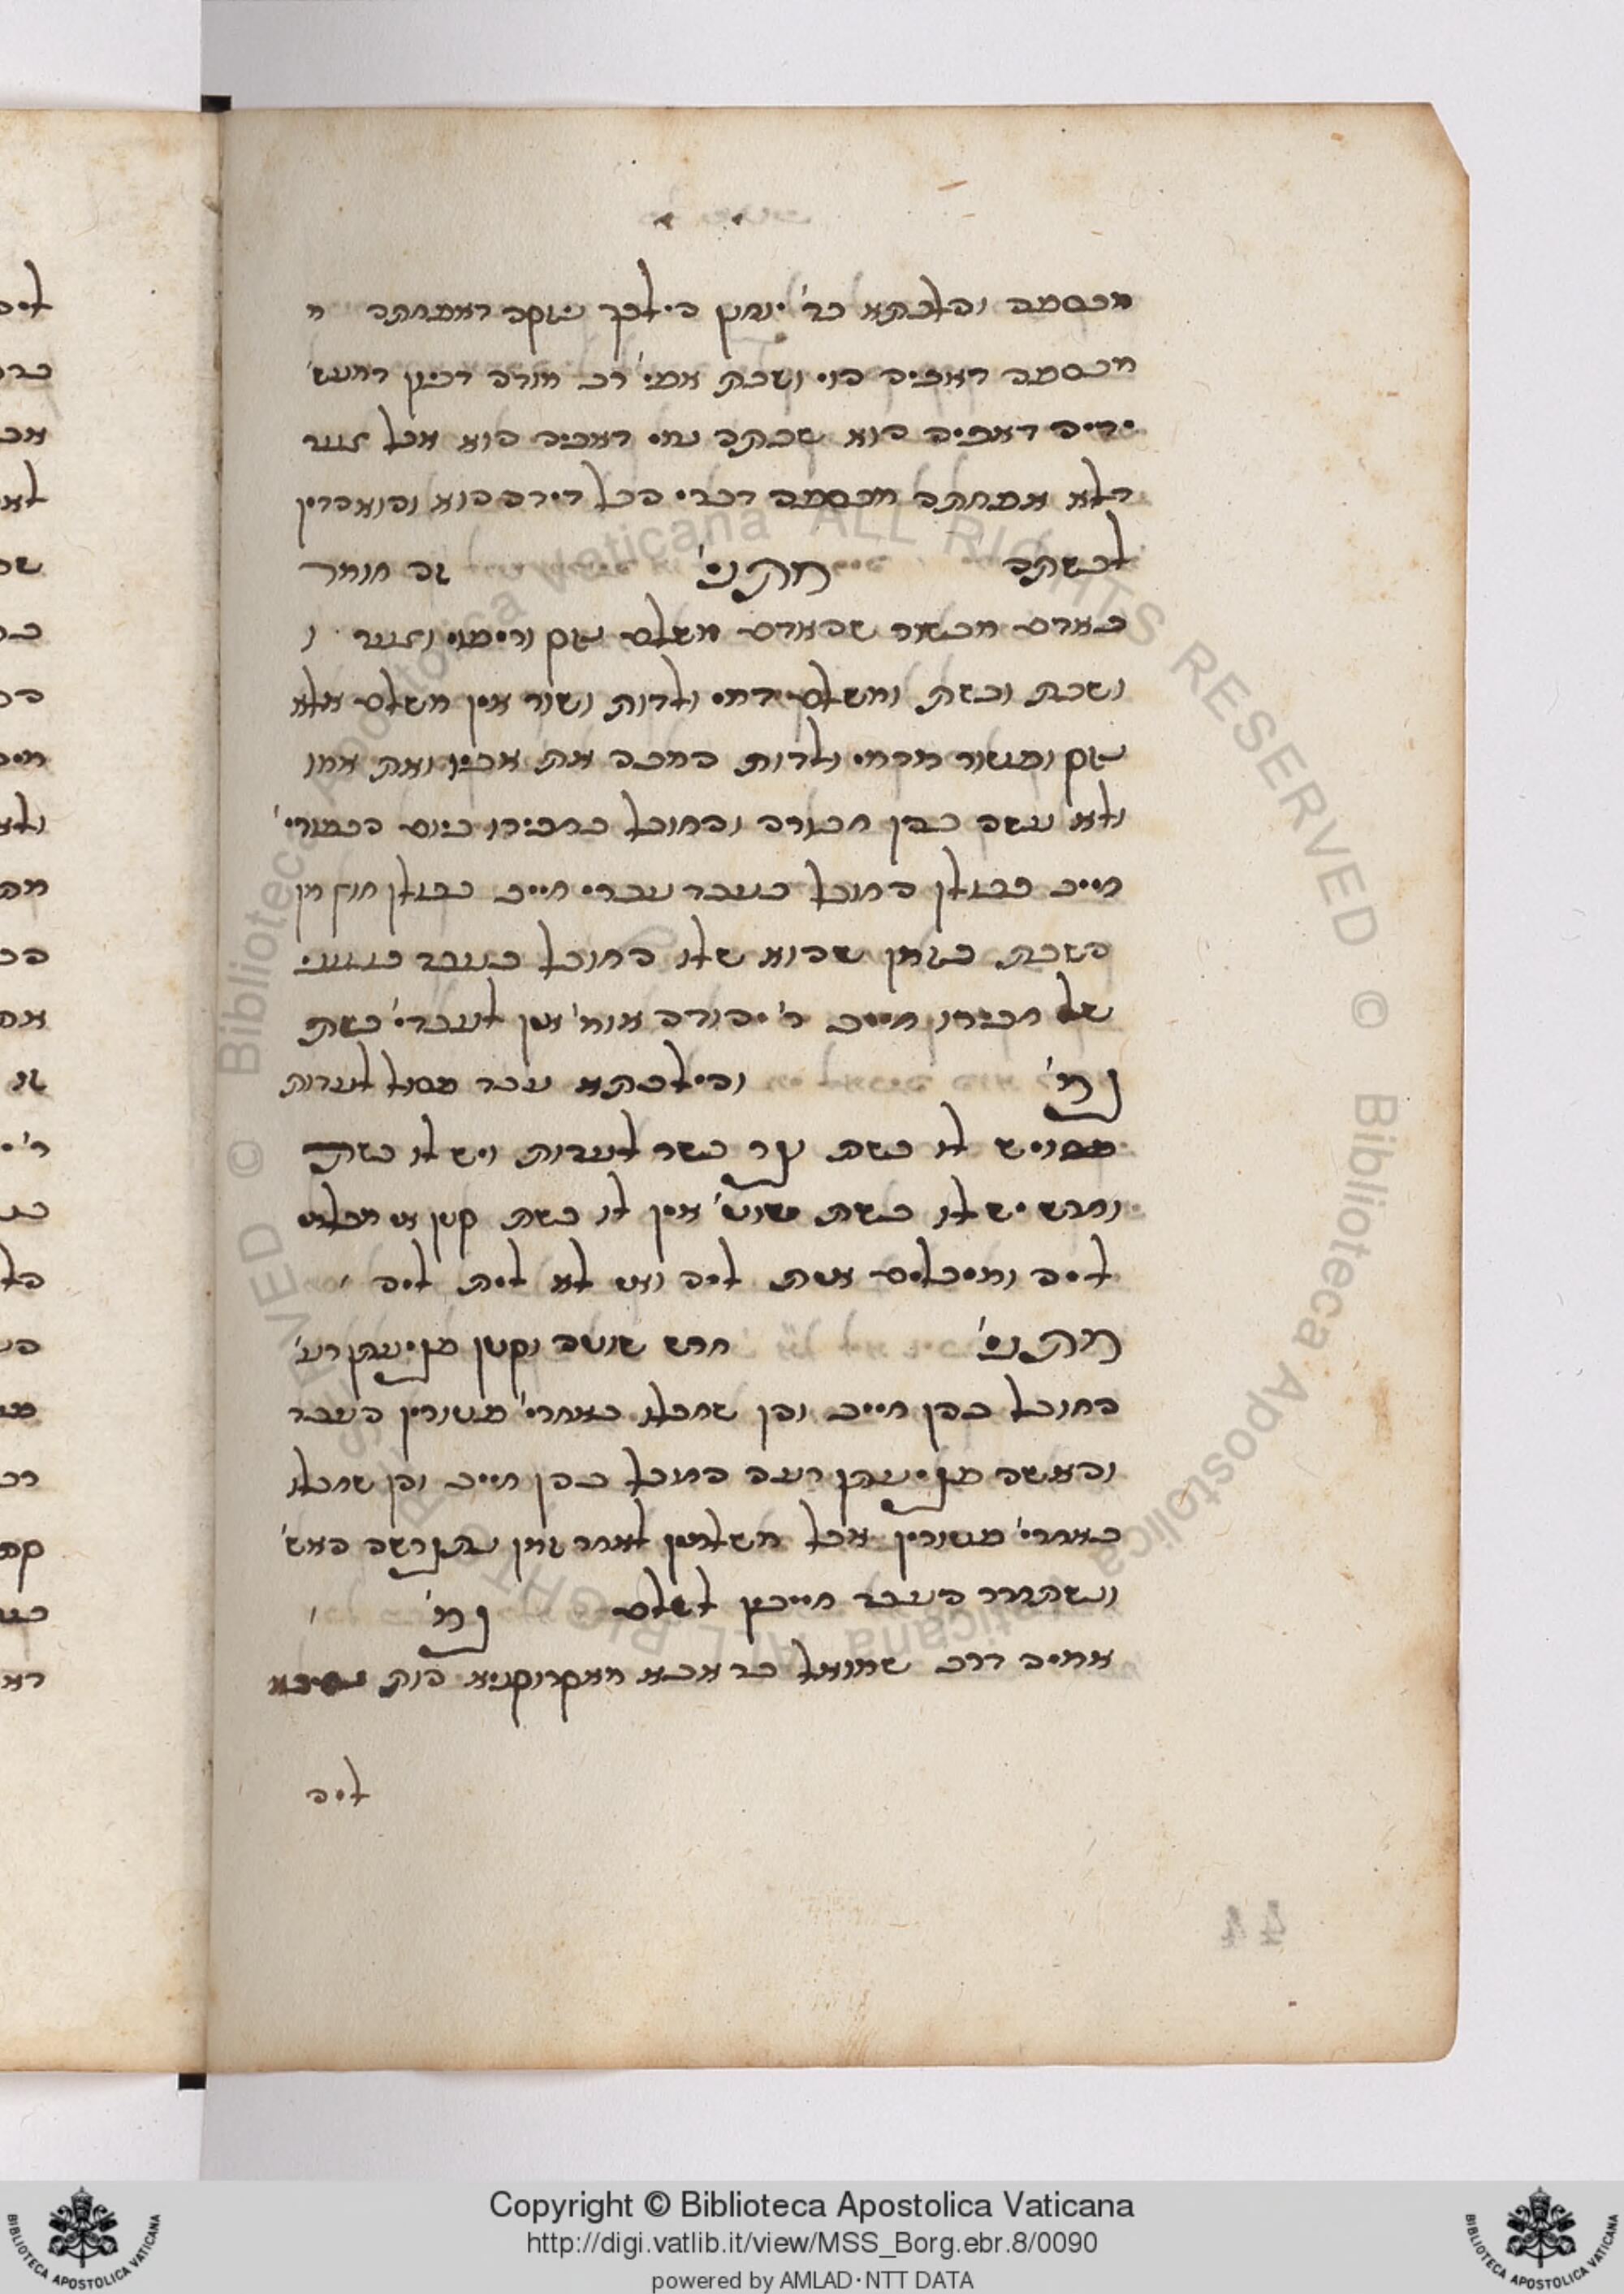 מכסמה והלכתא כר׳ יוחנן הילכך נזקה דאמרתה מ
מכסמה דאביה הוי ושבת אמ׳ רב יהודה דכיון דמעש׳
ידיה דאביה הוא שבתה נמי דאביה הוא אבל צער
דלא אמרתה מכסמה דברי הכל דידה הוא והוא הדין
לבשתה מתני׳ זה חומר
באדם מבשור שהאדם משלם נזק וריפוי וצער ו
ושבת ובשת ומשלם דמי ולדות ושור אין משלם אלא
נזק ופטור מדמי ולדות המכה את אביו ואת אמו
ולא עשה בהן חבורה והחובל בחבירו ביום הכפורי׳
חייב בכולן החובל בעבד עברי חייב בכולן חוץ מן
השבת בזמן שהוא שלו החובל בעבד כנעני
של חבירו חייב ר׳ יהודה אומ׳ אין לעבדי׳ בשת
גמ׳ והילכתא עבד פסול לעדות
ויש לו בשת גר כשר לעדות ויש לו בשת
וחרש יש לו בשת שוט׳ אין לו בשת קטן אי מכלמו
ליה ומיכלים אית ליה ואי לא לית ליה
מתני׳ חרש שוטה וקטן פגיעתן רע׳
החובל בהן חייב והן שחבלו באחרי׳ פטורין העבד
והאשה פגיעתן רעה החובל בהן חייב והן שחבלו
באחרי׳ פטורין אבל משלמין לאחר זמן נתגרשה האש׳
ונשתחרר העבד חייבין לשלם גמ׳
אמיה דרב שמואל בר אבא מאקרוקניא הות נסיבא
ליה
44
Copyright © Biblioteca Apostolica Vaticana
http://digi.vatlib.it/view/MSS_Borg.ebr.8/0090
powered by AMLAD·NTT DATA